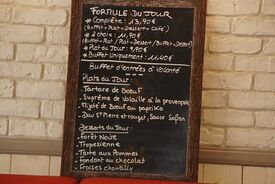 FORMULE DU JOUR
* Complète : 13,90€
(Buffet + Plat + Dessert + Café)
* 2 choix : 11,90€
(Buffet + Plat - Plat + Dessert / Buffet + Dessert)
* Plat du Jour : 9,90€
* Buffet uniquement : 11,40€
BUFFET D'entrées à VOLONTÉ
Plats du Jour :
- Tartare de Boeuf
- Suprême de Volaille à la provençale
- de Boeuf au paprika
- Duo St Pierre et rouget, Sauce Safran
Desserts du Jour :
- Forêt Noire
- Tropézienne
- Tarte aux Pommes
- Fondant au chocolat
- Fraises chantilly